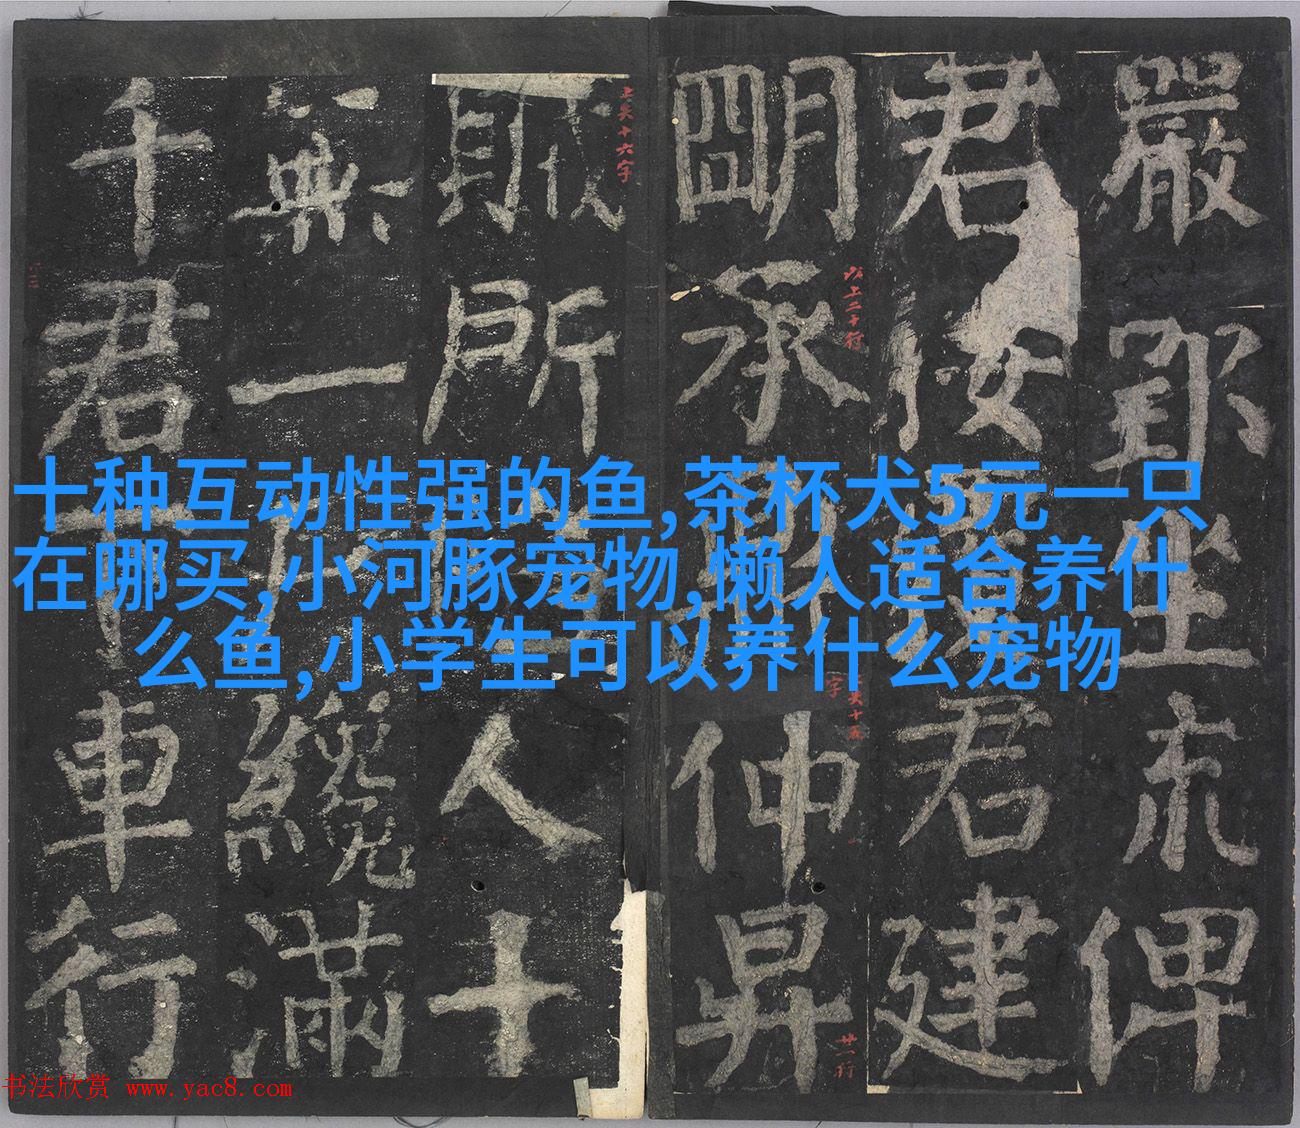 嚴坐未俾
君按君建
明承仲昇
賊所人十
無一纔滿
千君車行
上失十六字
以上二十行
十种互动性强的鱼,茶杯犬5元一只
在哪买,小河豚宠物,懒人适合养什
么鱼,小学生可以养什么宠物
书法欣赏 www.yac8.com